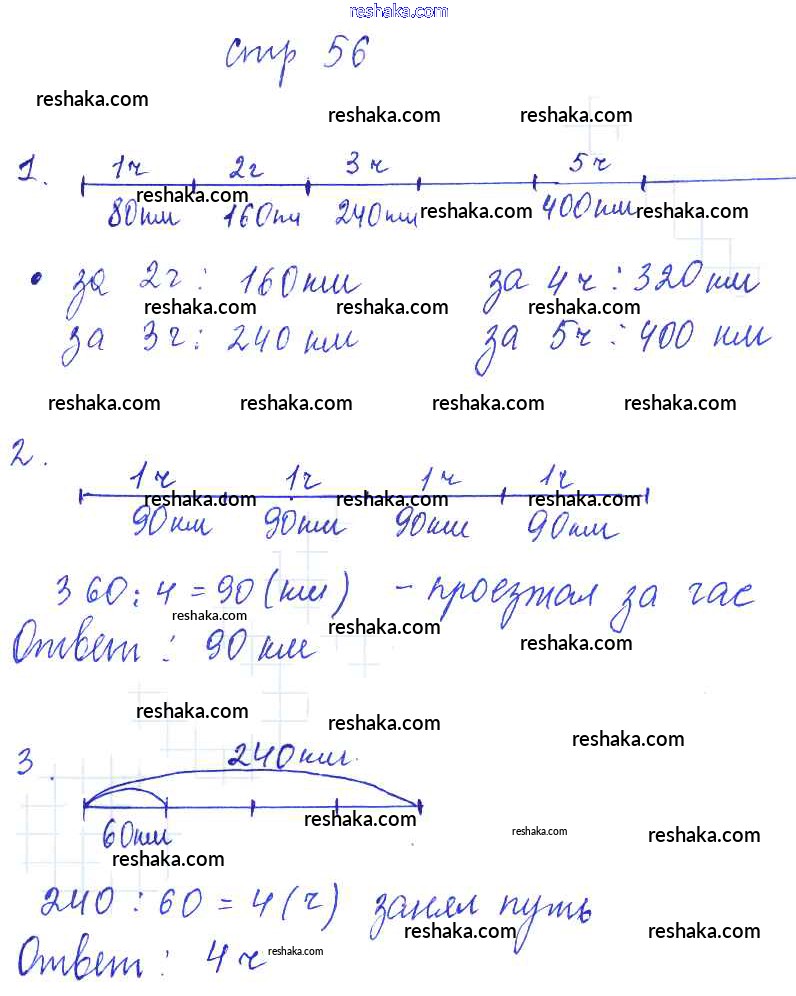 reshaka.com
стр 56
reshaka.com
reshaka.com reshaka.com
1. 1ч 2ч 3ч 5ч
reshaka.com
80км 160км 240км reshaka.com 400км reshaka.com
• за 2ч : 160км за 4ч : 320км
reshaka.com reshaka.com reshaka.com
за 3ч : 240 км за 5ч : 400 км
reshaka.com reshaka.com reshaka.com reshaka.com
2.
1ч 1ч 1ч 1ч
reshaka.com reshaka.com reshaka.com
90км 90км 90км 90км
360 : 4 = 90 (км) - проезжал за час
reshaka.com reshaka.com
Ответ : 90 км reshaka.com
reshaka.com reshaka.com reshaka.com
3. 240км
60км reshaka.com reshaka.com reshaka.com
reshaka.com
240 : 60 = 4 (ч) занял путь
reshaka.com reshaka.com
Ответ : 4ч reshaka.com